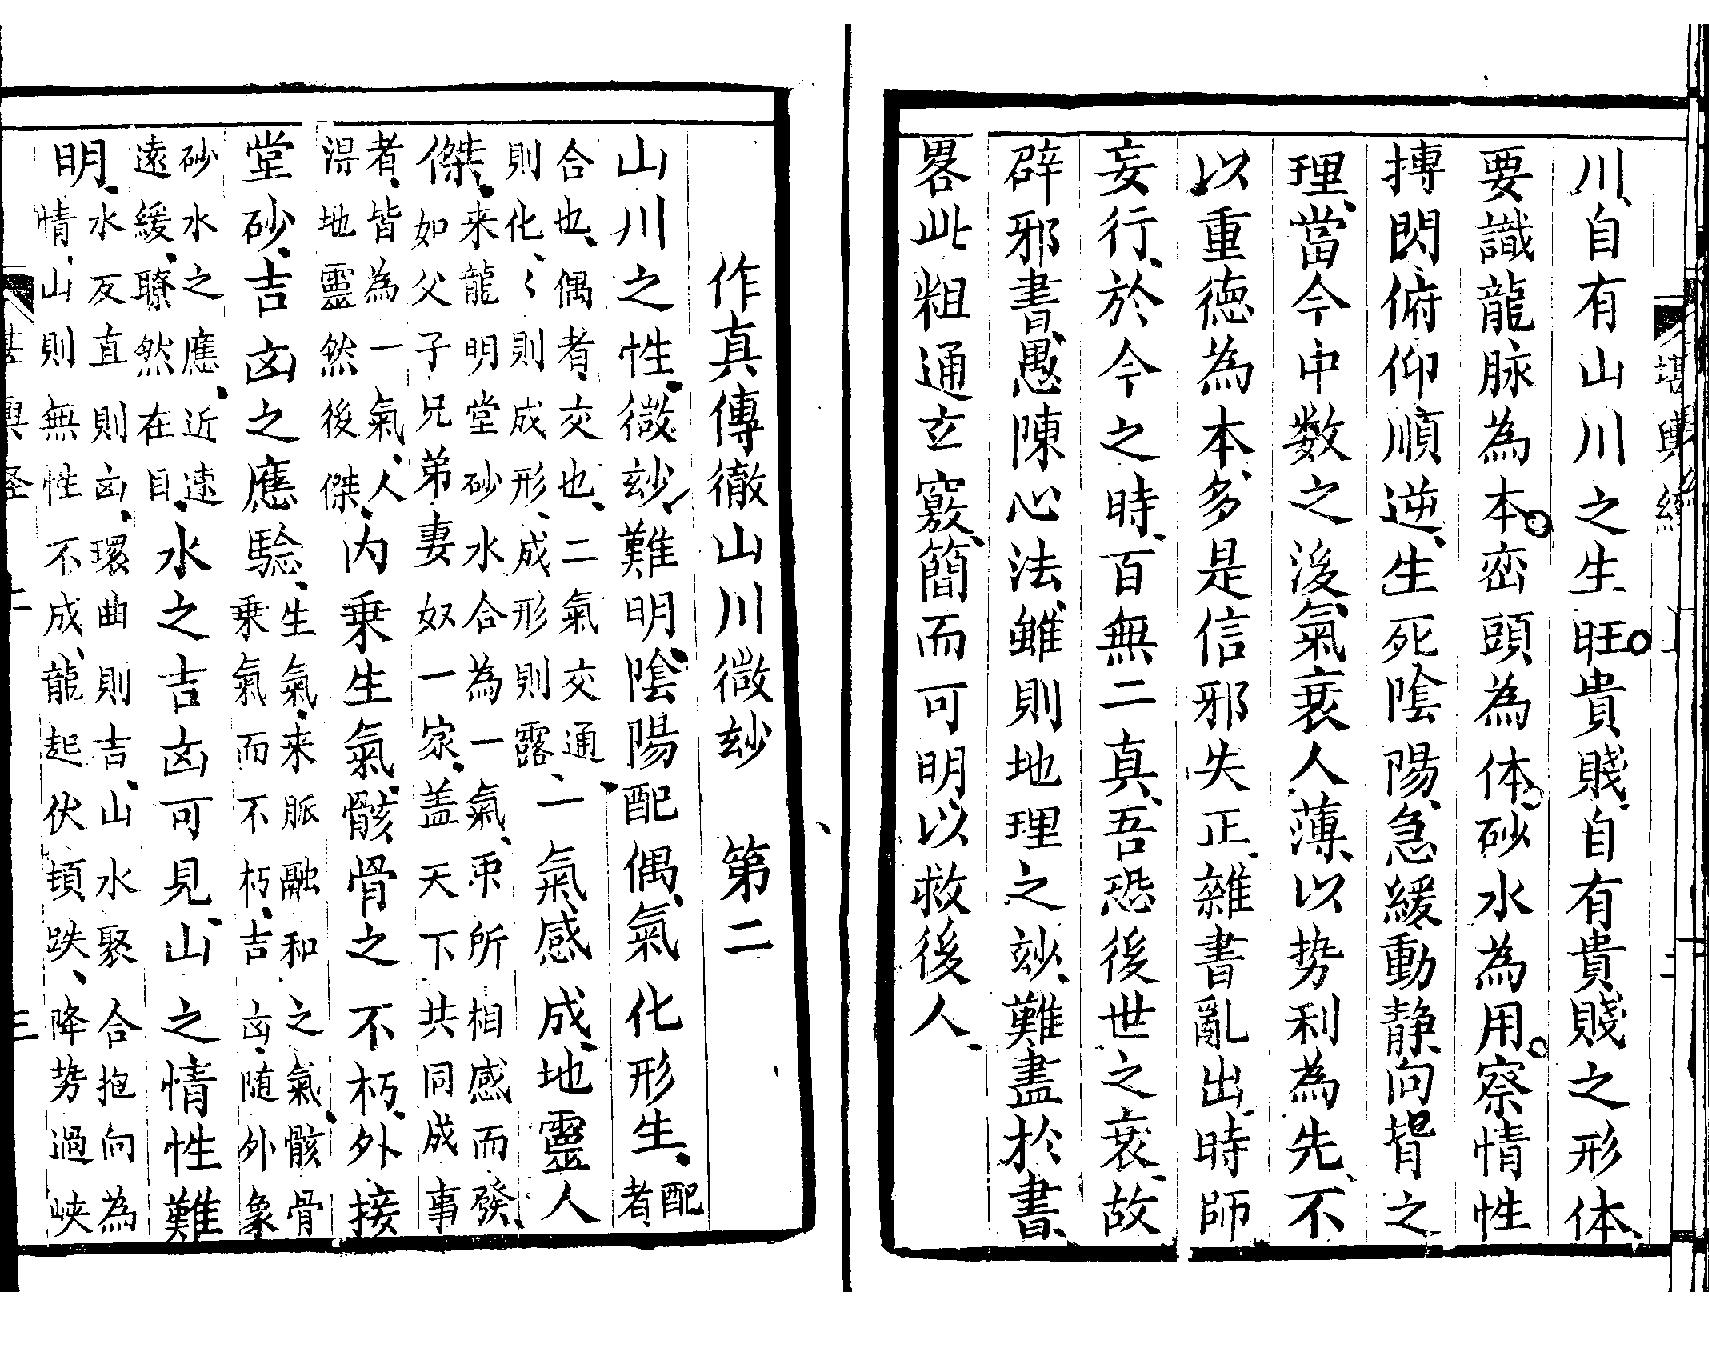 川、自有山川之生旺貴賤、自有貴賤之形体、
要識龍脉為本、峦頭為体、砂水為用、察情性
摶閃俯仰順逆、生死陰陽、急緩動静、向背之
理、當今中数之後、氣衰人薄、以势利為先、不
以重徳為本、多是信邪失正、雜書亂出、時師
妄行、於今之時、百無二真、吾恐後世之衰、故
辟邪書、愚陳心法、雖則地理之玅、難盡於書、
畧此粗通玄竅、簡而可明、以救後人、
作真傳徹山川微玅　第二
山川之性、微玅難明、陰陽配偶、氣化形生、配者
合也、偶者、交也、二氣交通、
則化、〻則成形、成形則露、一氣感成、地靈人
傑、来龍明堂砂水合為一氣、禀所相感而發、
如父子兄弟妻奴一家、盖天下共同成事
者、皆為一氣、人
得地靈然後傑、内乗生氣、骸骨之不朽、外接
堂砂、吉凶之應驗、生氣、来脈融和之氣、骸骨
乗氣而不朽、吉凶、随外象
砂水之應、近速
遠緩、驗然在目、水之吉凶可見、山之情性難
明、水反直則凶、環曲則吉、山水聚合抱向為
情、山則無性不成、龍起伏頓跌、降势過峡
堪輿經
堪輿經
三